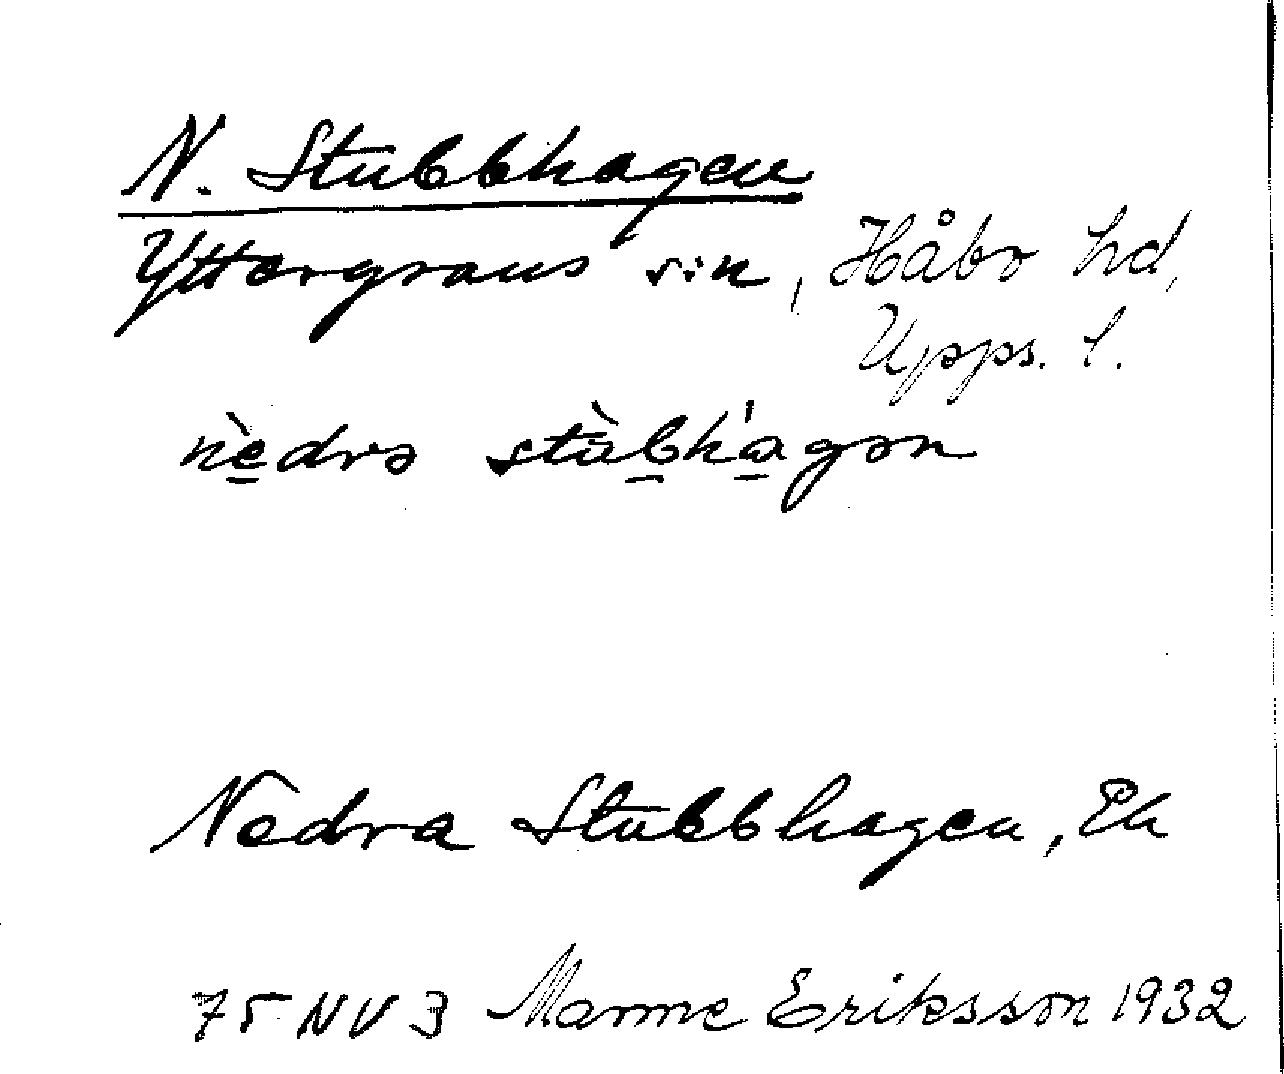 N. Stubbhagen
Yttergrans sn, Håbo hd,
Upps. l.
nèdrə stùbhagən
Nedra Stubbhagen, Ek
75 NV 3 Manne Eriksson 1932